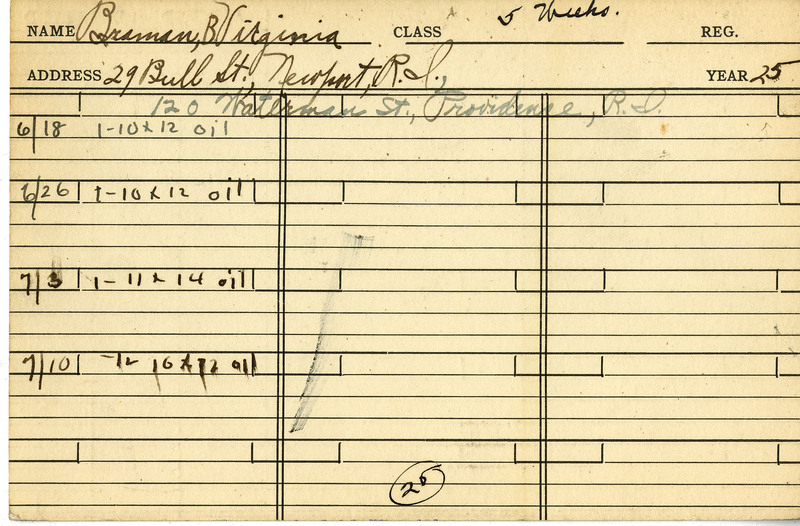 5 Weeks.
NAME Braman, B Virginia CLASS REG.
ADDRESS 29 Bull St., Newport, R.I., YEAR 25
120 Waterman St., Providense, R.I.
6/18 1-10x12 oil
6/26 1-10x12 oil
7/3 1-11x14 oil
7/10 10x12 oil
25